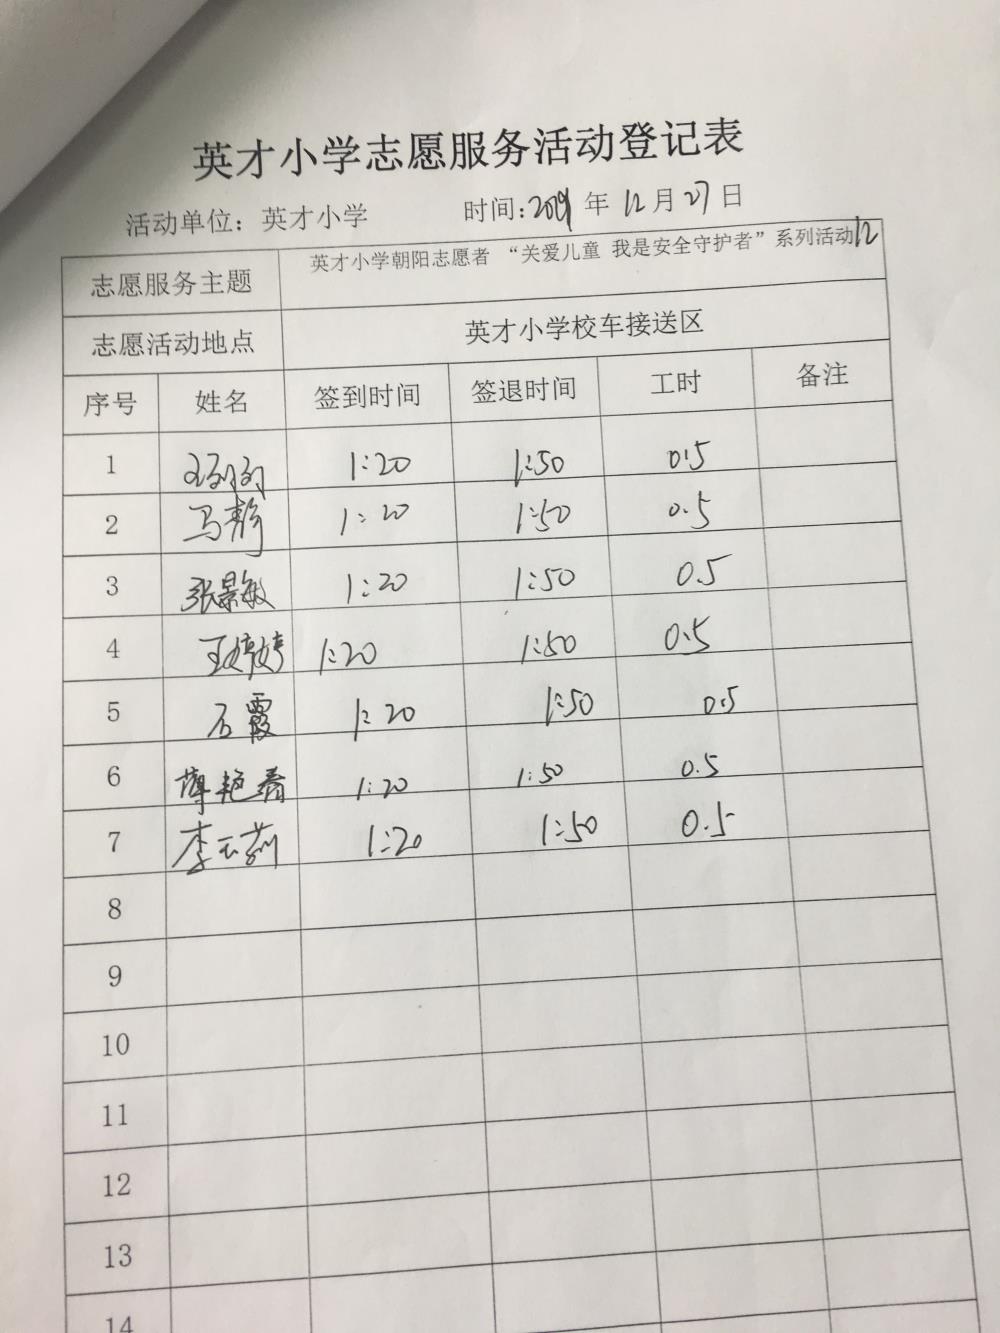 英才小学志愿服务活动登记表
活动单位：英才小学 时间：2019年12月27日
志愿服务主题 英才小学朝阳志愿者 “关爱儿童 我是安全守护者”系列活动12
志愿活动地点 英才小学校车接送区
序号 姓名 签到时间 签退时间 工时 备注
1 1:20 1:50 0.5
2 马静 1:20 1:50 0.5
3 张景敏 1:20 1:50 0.5
4 王婷婷 1:20 1:50 0.5
5 石霞 1:20 1:50 0.5
6 薄艳春 1:20 1:50 0.5
7 李云莉 1:20 1:50 0.5
8
9
10
11
12
13
14